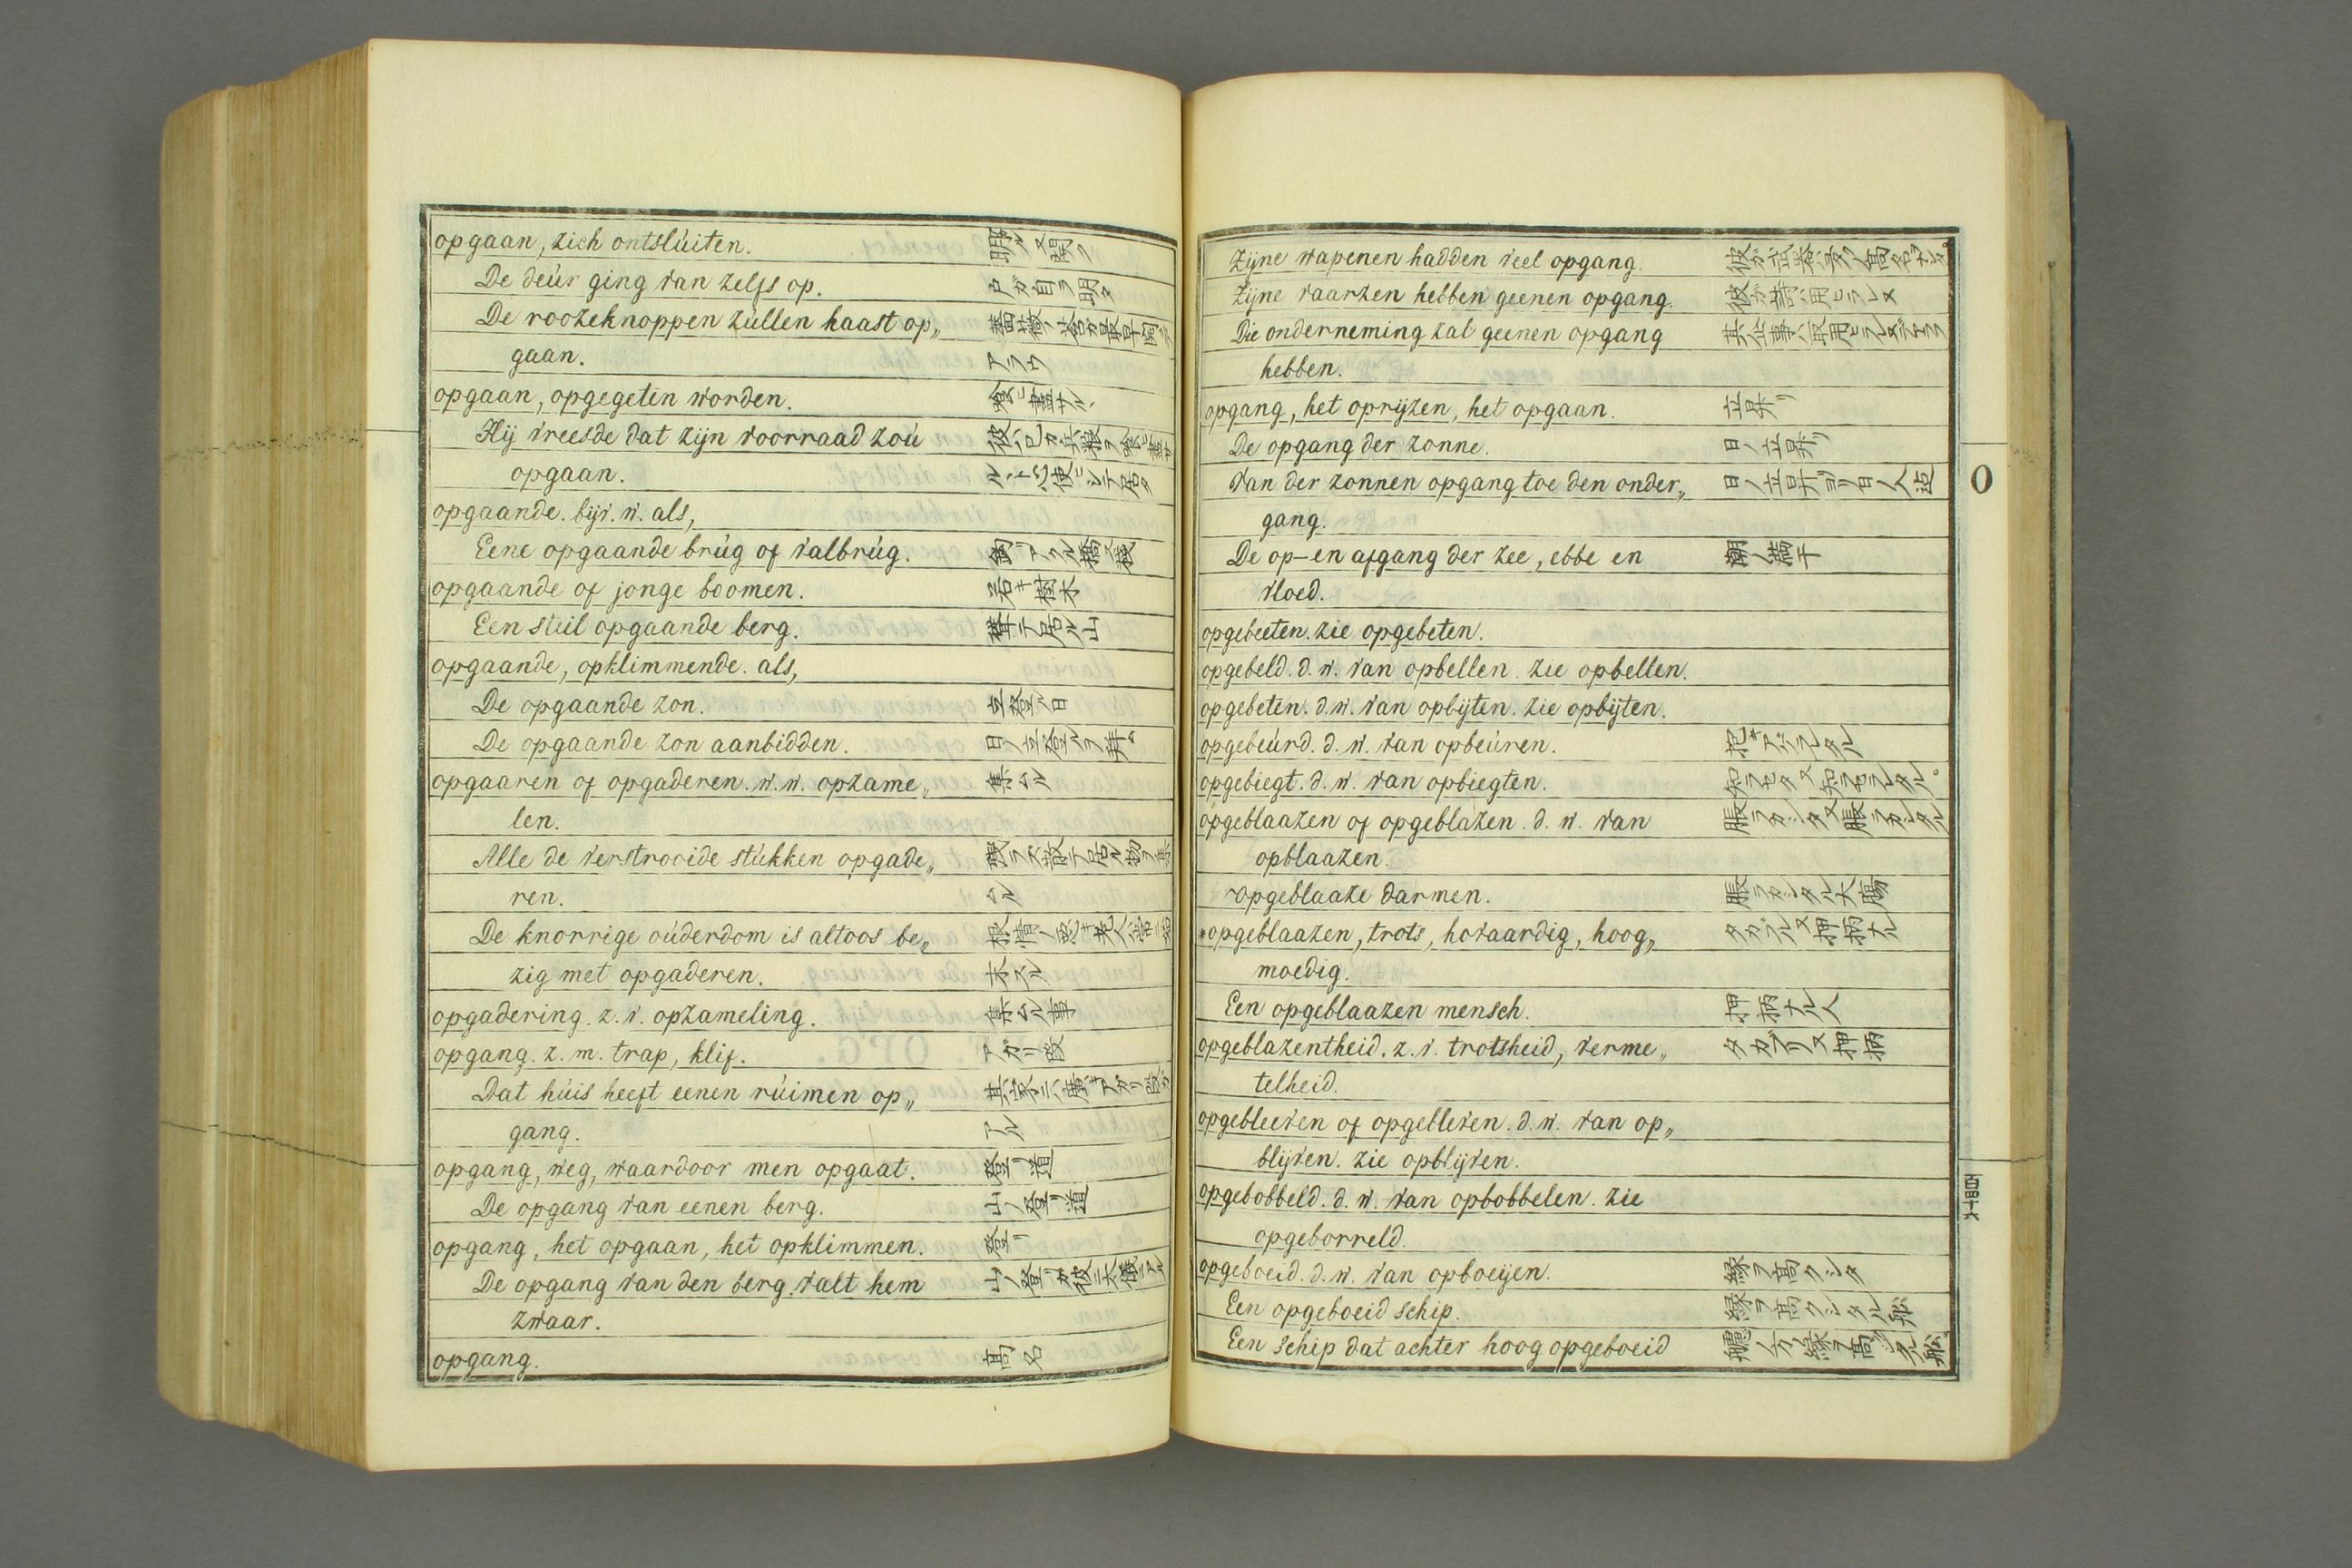 opgaan, zich ontslúiten. 明ル又開ク
De deúr ging van zelfs op. 戸ガ自ラ明タ
De roozeknoppen zúllen haast op„ 薔薇ノ莟ガ最早開テ
gaan. アラウ
opgaan, opgegeten worden. 喰ヒ盡サル丶
Hij vreesde dat zijn voorraad zoú
opgaan.
opgaande. bijv. w. als,
Eene opgaande brúg of valbrúg.
opgaande of jonge boomen. 若キ樹木
Een steil opgaande berg. 聳テ居ル山
opgaande, opklimmende. als,
De opgaande zon. 立登ル日
De opgaande zon aanbidden. 日ノ立登ルヲ拜ム
opgaaren of opgaderen. w. w. opzame„ 集ムル
len.
Alle de verstrooide stúkken opgade„ 残ラズ散テ居ル物ヲ集
ren. ムル
De knorrige oúderdom is altoos be„
zig met opgaderen.
opgadering. z. v. opzameling. 集ムル事
opgang. z. m. trap, klif. アガリ段
Dat húis heeft eenen rúimen op„ 其家ニハ廣キアガリ段ガ
gang. アル
opgang, weg, waardoor men opgaat. 登リ道
De opgang van eenen berg. 山ノ登リ道
opgang, het opgaan, het opklimmen. 登リ
De opgang van den berg valt hem 山ノ登リガ彼ニ大儀ニアル
zwaar.
opgang. 高名
Zijne wapenen hadden veel opgang.
Zijne vaarzen hebben geenen opgang.
Die onderneming zal geenen opgang
hebben.
opgang, het oprijzen, het opgaan. 立昇リ
De opgang der zonne. 日ノ立昇リ
Van der zonnen opgang toe den onder„ 日ノ立昇ヨリ日ノ入迄
gang.
De op-en afgang der zee, ebbe en 潮ノ満干
vloed.
opgebeeten. zie opgebeten.
opgebeld. d. w. van opbellen. zie opbellen.
opgebeten. d. w. van opbijten. zie opbijten.
opgebeúrd. d. w. van opbeúren.
opgebiegt. d. w. van opbiegten.
opgeblaazen of opgeblazen. d. w. van 脹ラカシタ又脹ラカシタル
opblaazen.
opgeblaaze darmen. 脹ラカシタル大腸
*opgeblaazen, trots, hovaardig, hoog„ タカブル又押柄ナル
moedig.
Een opgeblaazen mensch. 押柄ナル人
opgeblazentheid. z. v. trotsheid, verme„ タカブリ又押柄
telheid.
opgebleeven of opgebleven. d. w. van op„
blijven. zie opblijven.
opgebobbeld. d. w. van opbobbelen. zie
opgeborreld.
opgeboeid. d. w. van opboeijen. 縁ヲ高クシタ
Een opgeboeid schip. 縁ヲ高クシタル船
Een schip dat achter hoog opgeboeid
O
百四十六